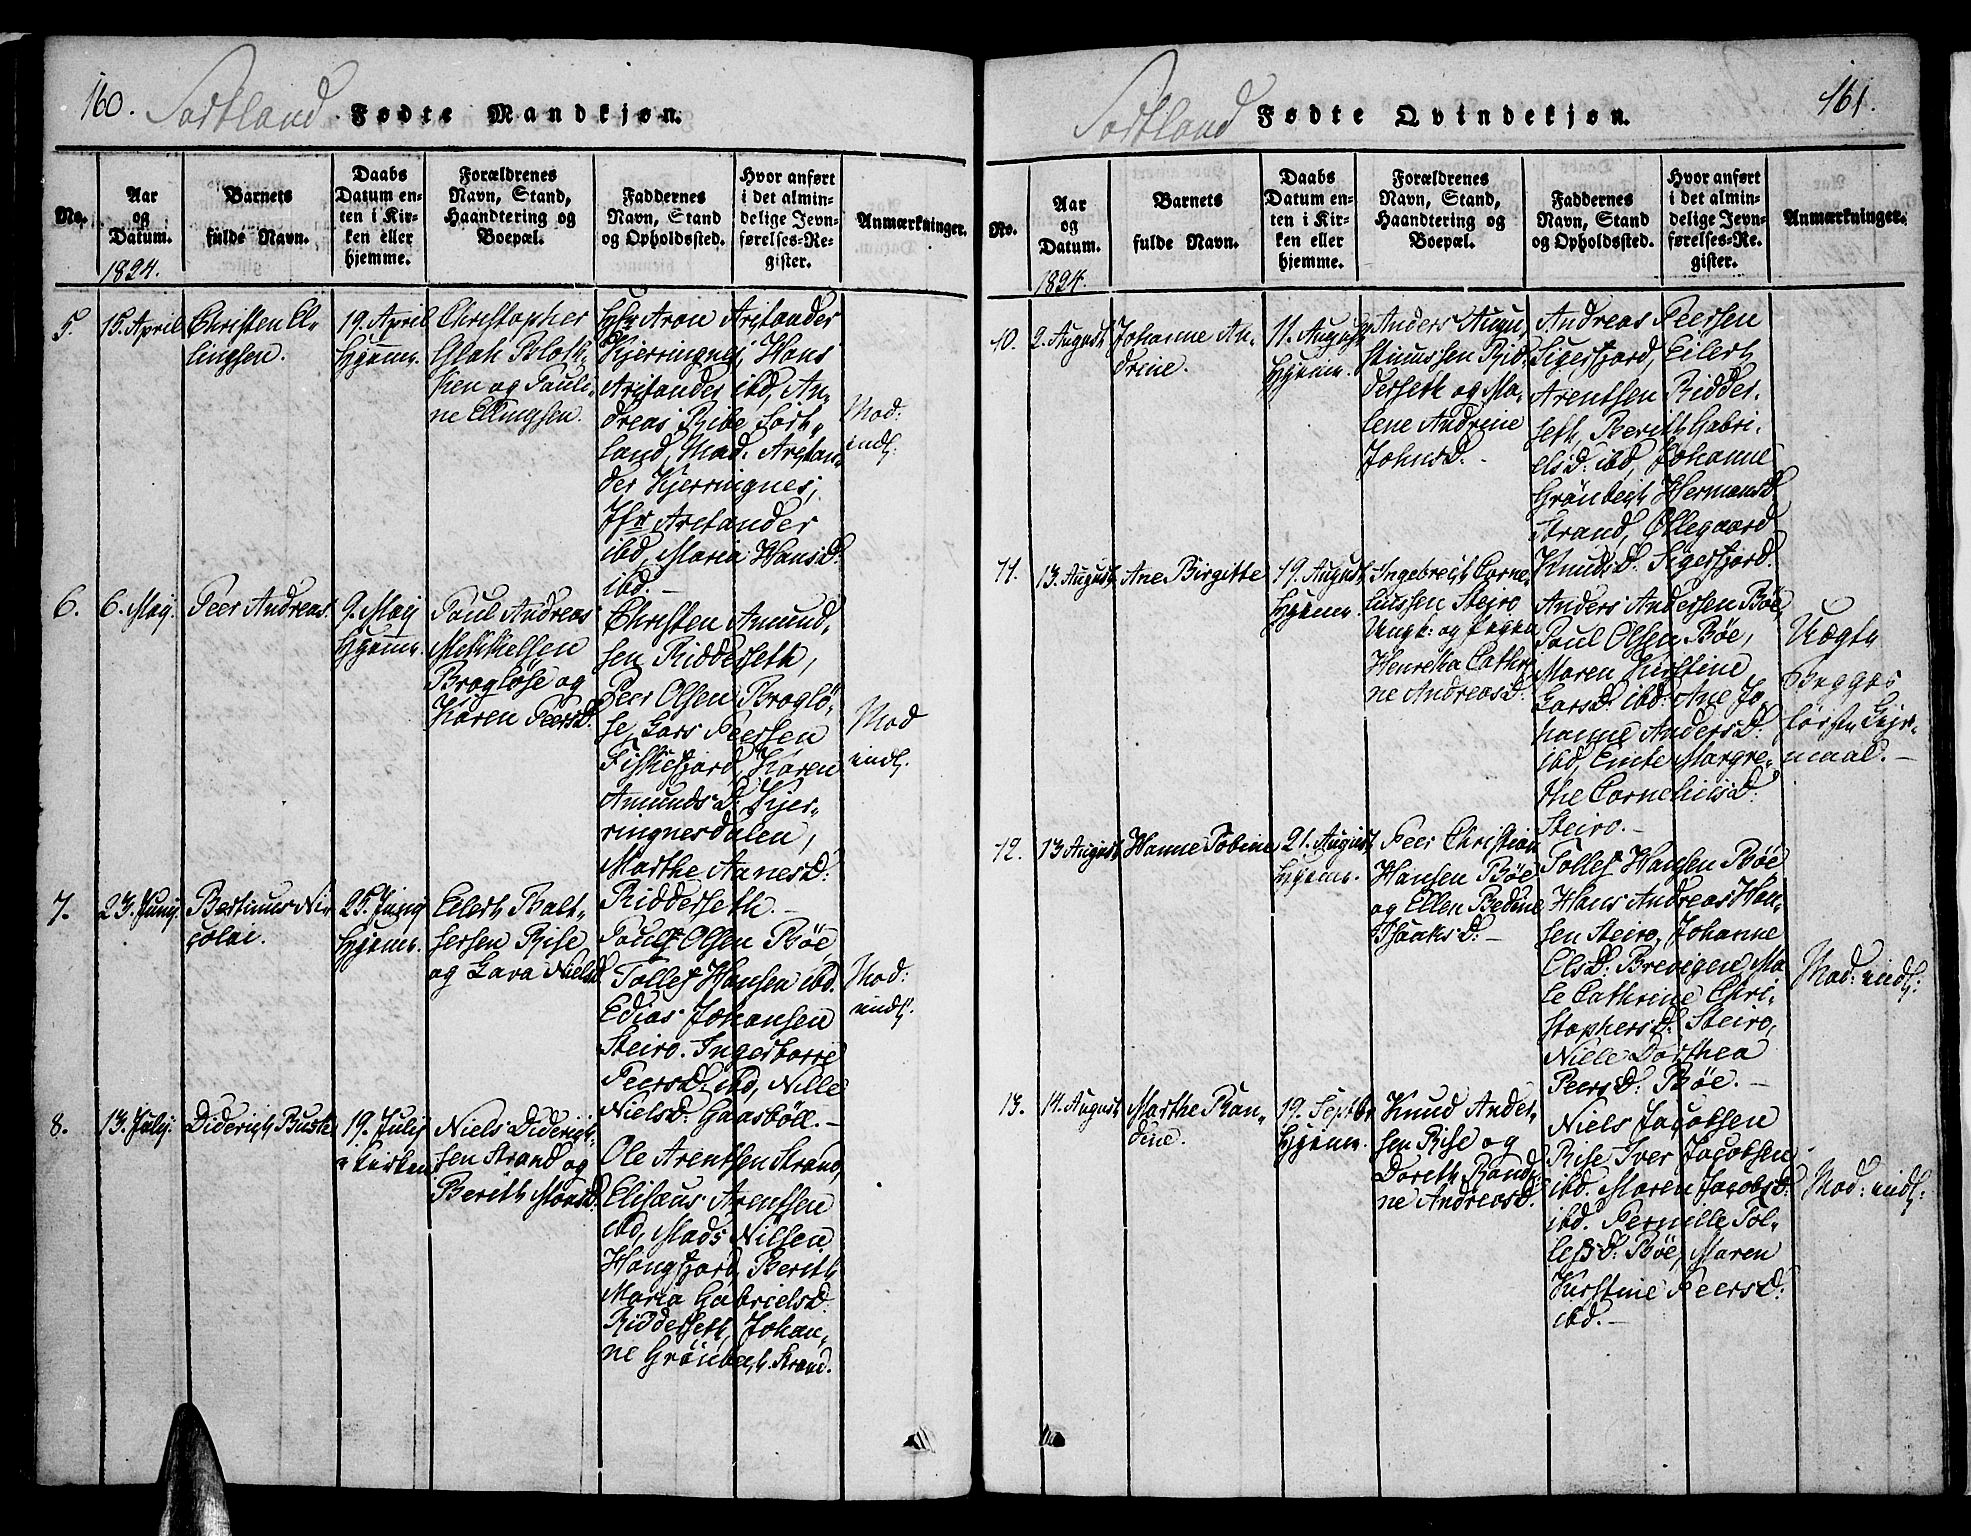 160. Sortland Fødte Mandkjøn.
No.
Aar
og
Datum.
1824.
Barnets
fulde Navn.
Daabs
Datum en-
ten i Kir-
ken eller
hjemme.
Forældrenes
Navn, Stand,
Haandtering og
Boepæl.
Faddernes
Navn, Stand
og Opholdssted.
Hvor anført
i det almin-
delige Jevn-
førelses-Re-
gister.
Anmærkninger.
5.
15. April
Christen El-
lingsen.
19. April
Hjemme.
Christopher
Pauli-
ne Ellingsen.
Aron Arctander
Kjerringnes, Hans
Arctander ibd, An-
dreas Ribe Sort-
land, Mad. Arctan-
der Kjerringnes,
Jfr Arctander
ibd, Maria Hansd:
ibd.
Mod:
indf.
6.
6. May.
Peer Andreas.
9. May
Hjemme.
Paul Andreas
Mekkelsen
Brogløse og
Karen Peersd.
Christen Amund-
sen Ridderseth,
Peer Olsen Brogløs-
se, Lars Peersen
Fiskefjord, Karen
Amundsd: Kjer-
ringnesdalen,
Marthe Aanesd:
Ridderseth.
Mod
indf.
7.
23. Juny.
Bertinus Ni-
colai.
25. Juny
Hjemme.
Eilert Balt-
sersen Rise
og Lava Nielsd
Poul Olsen Bøe
Tollef Hansen ibd.
Edias Johansen
Steiro. Ingeborre
Peersd. ibd, Nille
Nielsd. Gaasbøll.
Mod:
indf.
8.
13. July.
Diderich Buck
19. July
i Kirken
Niels Diderich-
sen Strand og
Berith Monsd.
Ole Arentsen Strand,
Elisæus Arentsen
ibd, Mads Nilsen
Hongfjord, Berith
Maria Gabrielsd.
Ridderseth, Johan-
ne Grønbech. Strand.
Sortland Fødte Qvindekjøn. 161.
No.
Aar
og
Datum.
1824.
Barnets
fulde Navn.
Daabs
Datum en-
ten i Kir-
ken eller
hjemme.
Forældrenes
Navn, Stand,
Haandtering og
Boepæl.
Faddernes
Navn, Stand
og Opholdssted.
Hvor anført
i det almin-
delige Jevn-
førelses-Re-
gister.
Anmærkninger.
10.
2. August
Johanne An-
drine.
11. August
Hjemme.
Anders Augu-
stinussen Rid-
derseth og Ma-
lene Andrine
Johnsd.
Andreas Peersen
Sigerfjord, Eilert
Arentsen Ridder-
seth, Berith Gabri-
elsd: ibd, Johanne
Grønbech, Hermansd
Strand, Ollegaard
Knudsd. Sigerfjord.
11.
13. August
Ane Birgitte
19. August
Hjemme.
Ingebregt Corne-
liussen Steiro
Ungk: og Pigen
Henrikka Cathri-
ne Andreasd.
Anders Andersen Bøe,
Paul Olsen Bøe,
Maren Kirstine
Larsd. ibd: Ane Jo-
hanne Andersd.
ibd, Margre-
the Corneliusd.
Steiro.
Uægte
Begges
første Leir-
maal.
12.
13 August
Hanne Tobine
21. August
Hjemme.
Peer Christian
Hansen Bøe
og Ellen Bedine
Isaaksd:
Tollef Hansen Bøe
Hans Andreas Han-
sen Steiro, Johanne
Olsd: Brevigen, Ma-
le Cathrine Chri-
stophersd: Steiro,
Nille Dorthea
Peersd: Bøe.
Mod: indf:
13.
14. August
Marthe Ran-
dine.
19. Septbr
Hjemme.
Knud Ander-
sen Rise og
Doreth Randi-
ne Andreasd.
Niels Jacobsen
Rise, Iver Jacobsen
ibd. Maren Jacobsd:
ibd. Pernille Tol-
lefsd: Bøe, Maren
Kirstine Peersd:
ibd.
Mod: indf: